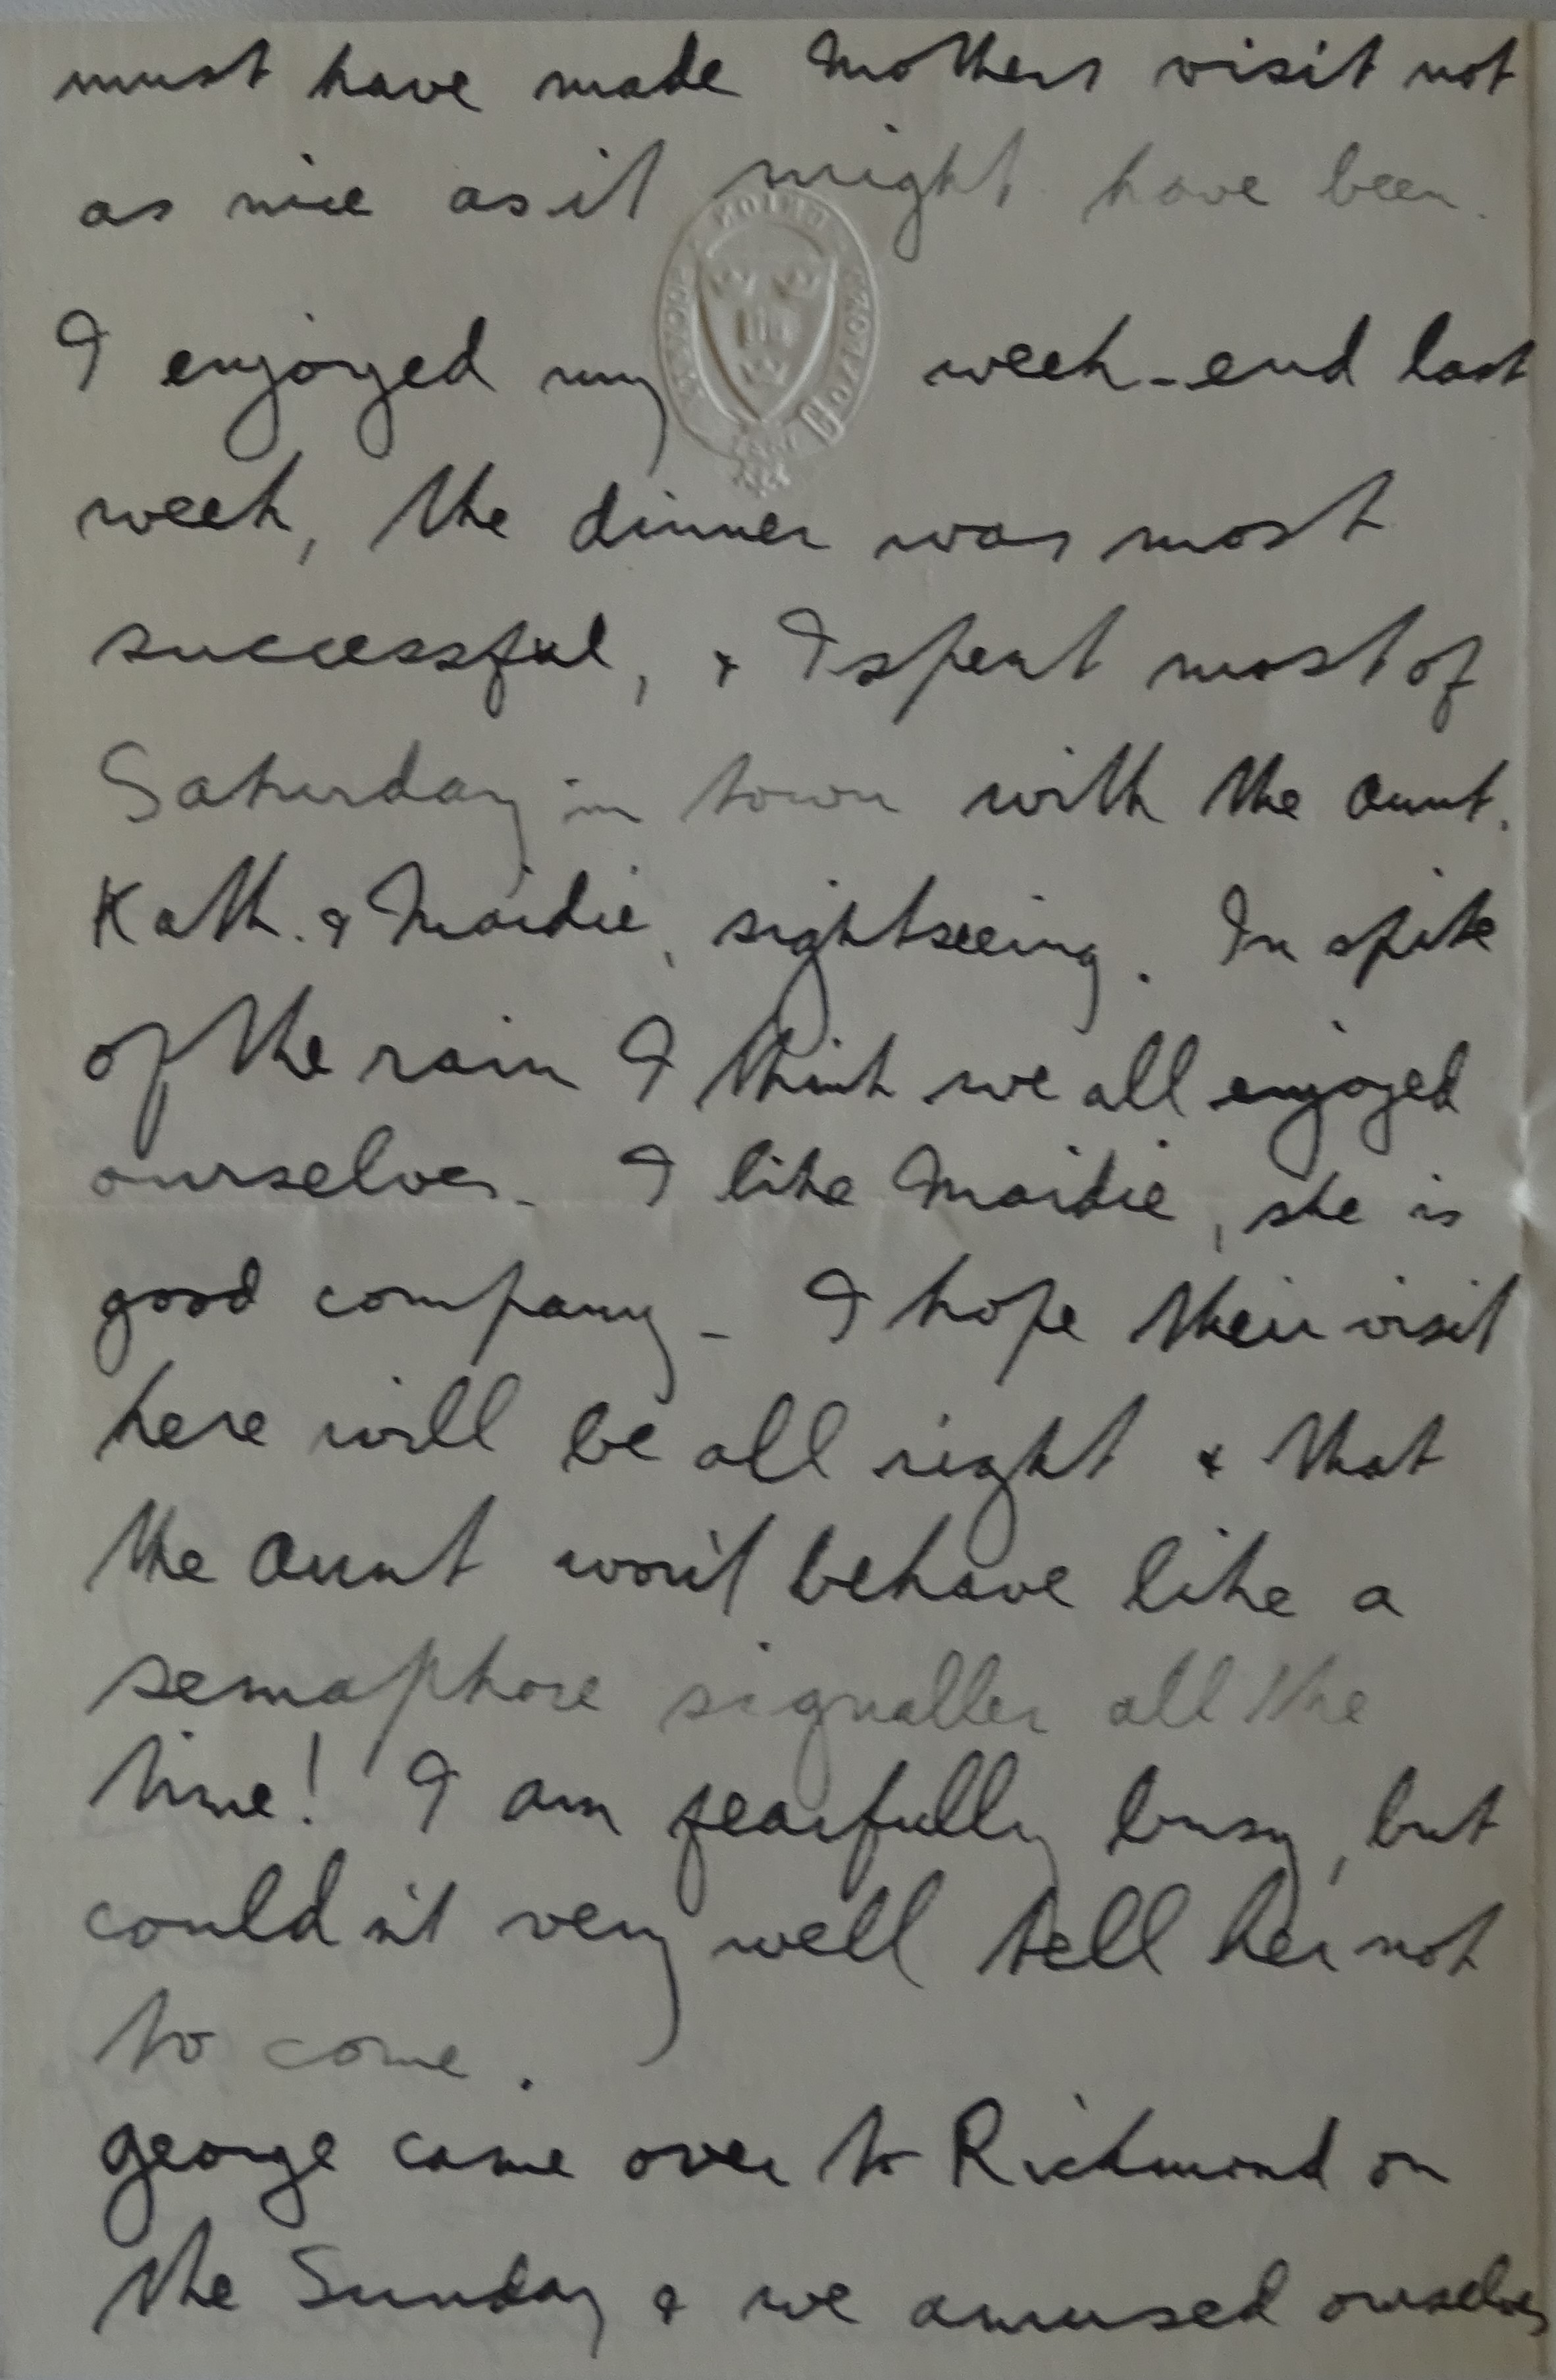 must have made Mothers visit not
as nice as it might have been.
I enjoyed my week-end last
week, the dinner was most
successful, & I spent most of
Saturday in town with the Aunt.
Kath. & Maidie, sightseeing. In spite
of the rain I think we all enjoyed
ourselves. I like Maidie, she is
good company - I hope their visit
here will be all right & that
the Aunt won't behave like a
semaphore signaller all the
time! I am fearfully busy, but
couldn't very well tell her not
to come.
George came over to Richmond on
the Sunday & we amused ourselves